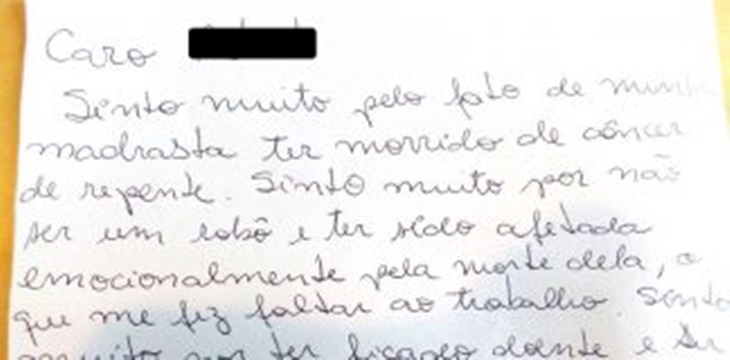 Caro
Sinto muito pelo fato de minha
madrasta ter morrido de câncer
de repente. Sinto muito por não
ser um robô e ter sido afetada
emocionalmente pela morte dela, o
que me fez faltar ao trabalho. Sinto
muito por ter ficado doente e ter